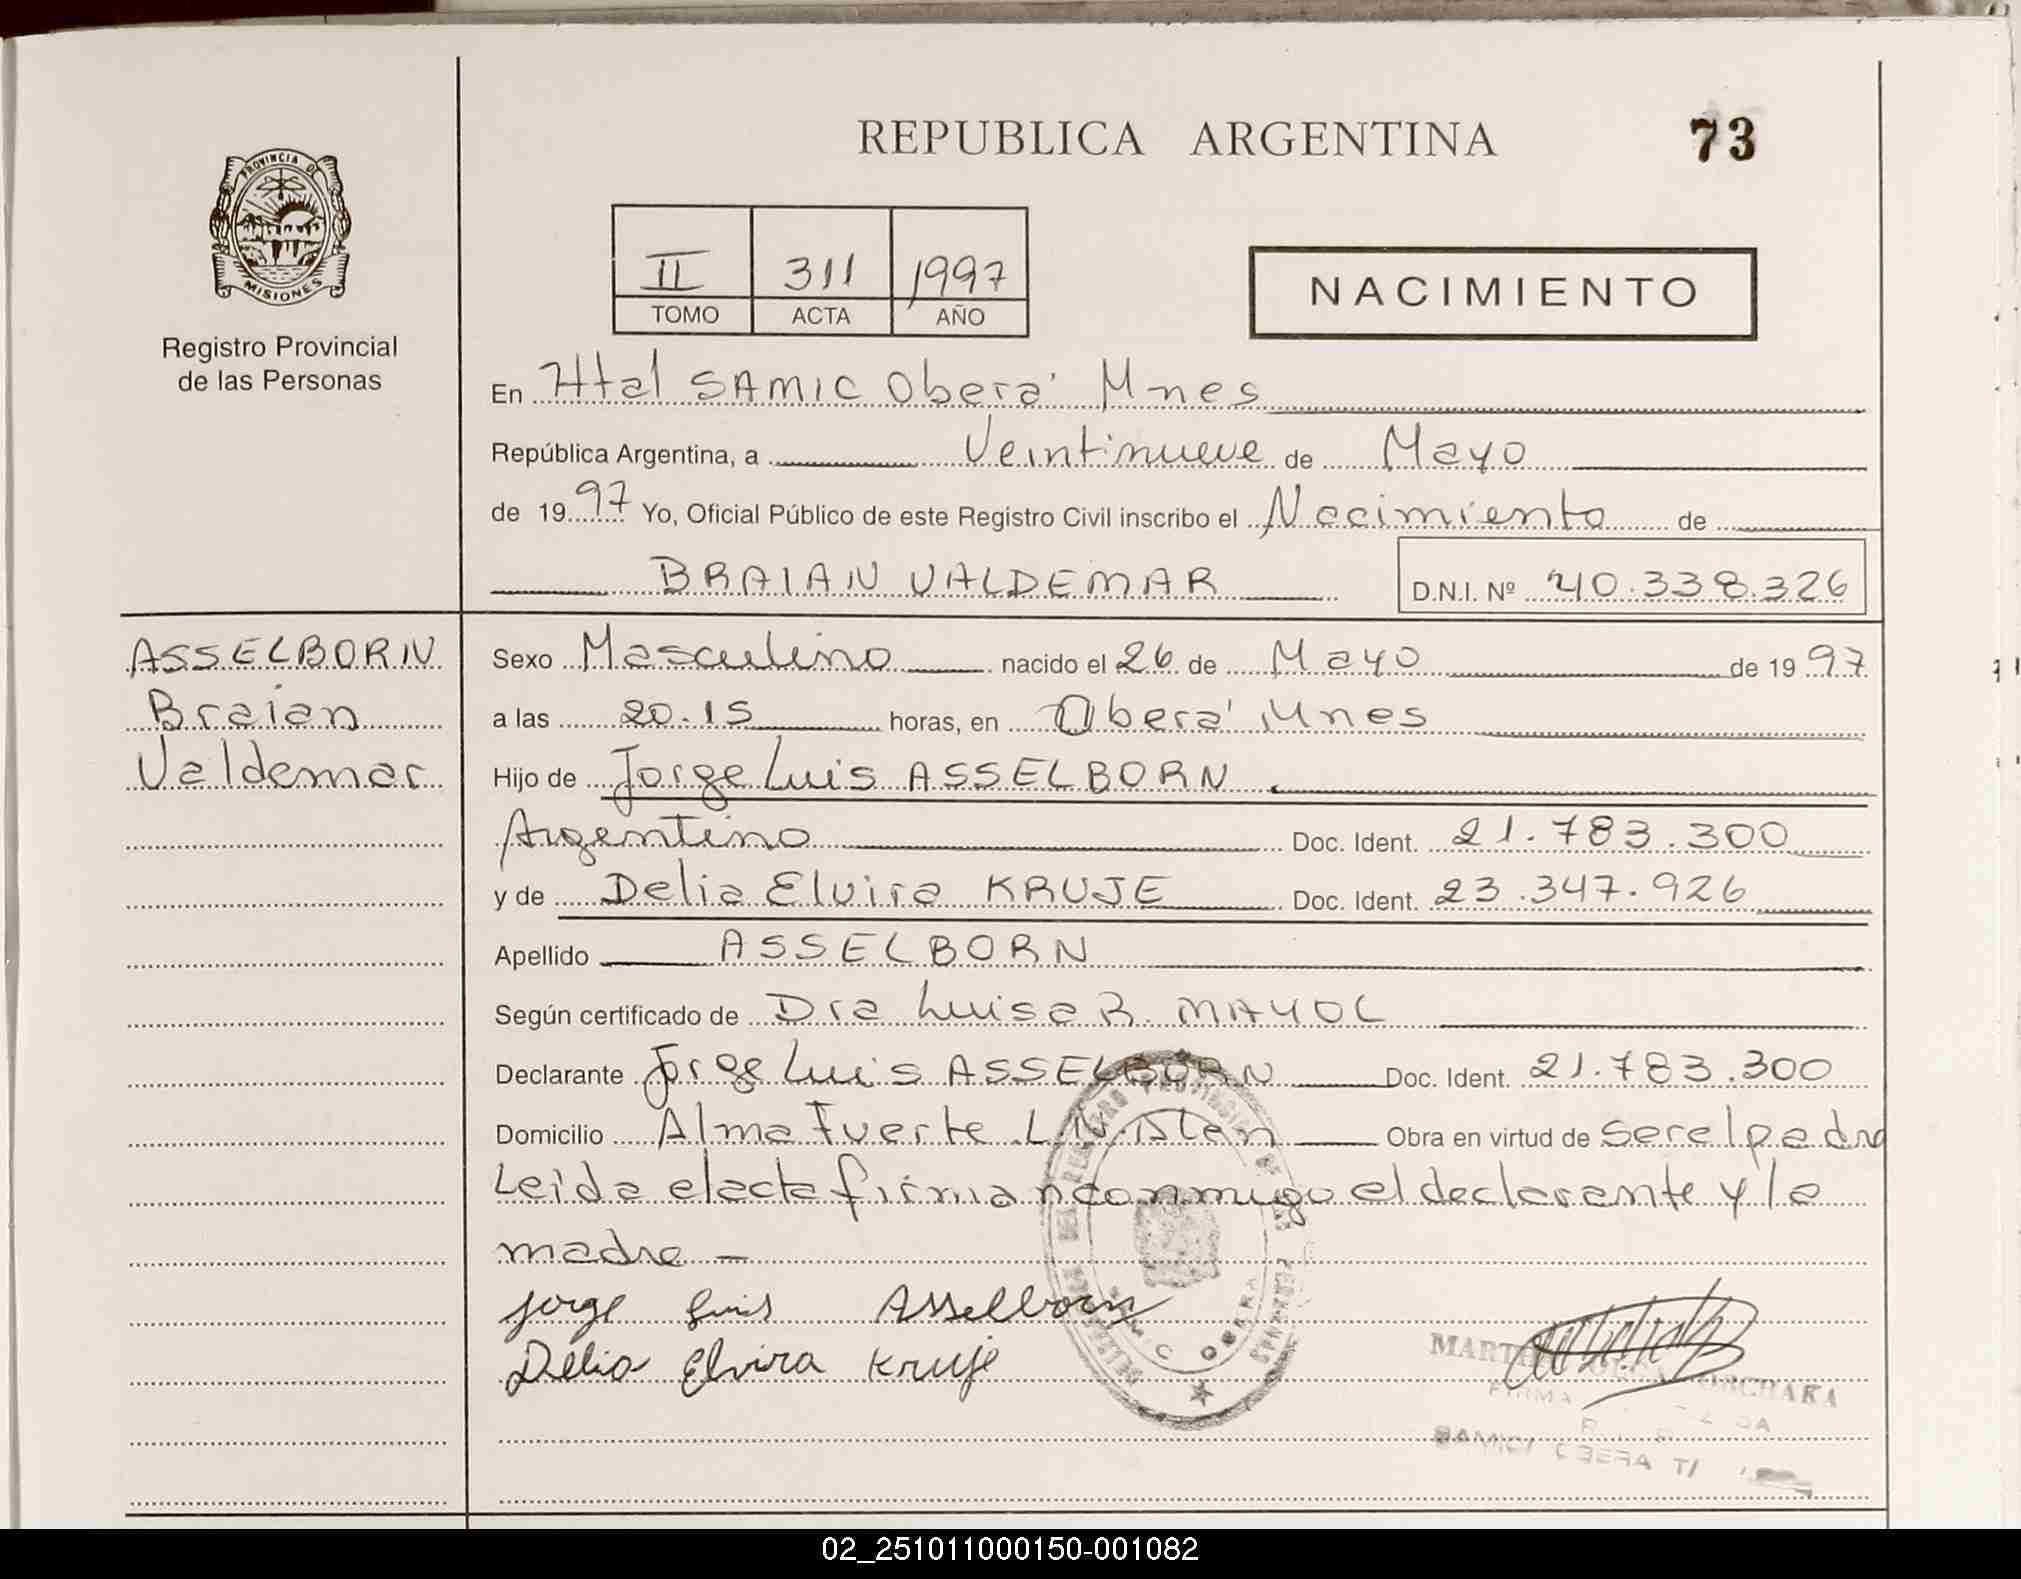 REPUBLICA ARGENTINA
73
PROVINCIA DE
MISIONES
Registro Provincial
de las Personas
II 311 1997
TOMO ACTA AÑO
NACIMIENTO
En Htal SAMIC Oberá Mnes
República Argentina, a Veintinueve de Mayo
de 1997 Yo, Oficial Público de este Registro Civil inscribo el Nacimiento de
BRAIAN VALDEMAR D.N.I. Nº 40.338.326
ASSELBORN
Braian
Valdemar
Sexo Masculino nacido el 26 de Mayo de 1997
a las 20.15 horas, en Oberá Mnes
Hijo de Jorge Luis ASSELBORN
Argentino Doc. Ident. 21.783.300
y de Delia Elvira KRUJE Doc. Ident. 23.347.926
Apellido ASSELBORN
Según certificado de Dra Luisa R. MAYOL
Declarante Jorge Luis ASSELBORN Doc. Ident. 21.783.300
Domicilio Alma Fuerte L.N.Alen Obra en virtud de ser el padre
Leida el acta firman conmigo el declarante y la
madre –
Jorge Luis Asselborn
Delia Elvira Kruje
OBERA
02_251011000150-001082